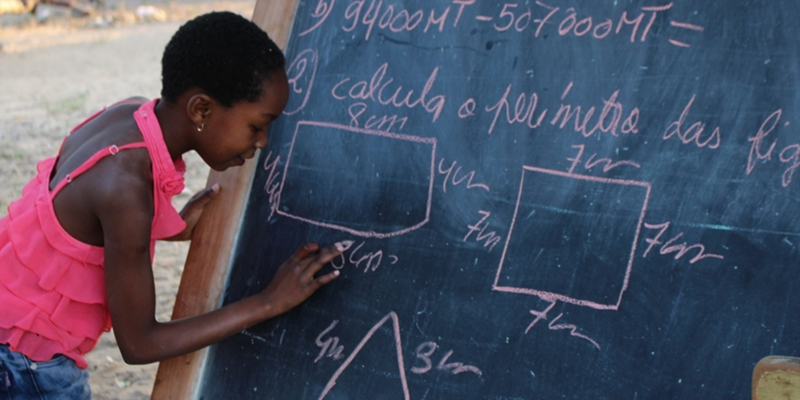 b) 94000MT-507000MT=
2) calcula o perímetro das fig
8cm
4cm 4cm
8cm
7cm
7cm 7cm
7cm
4cm 3cm